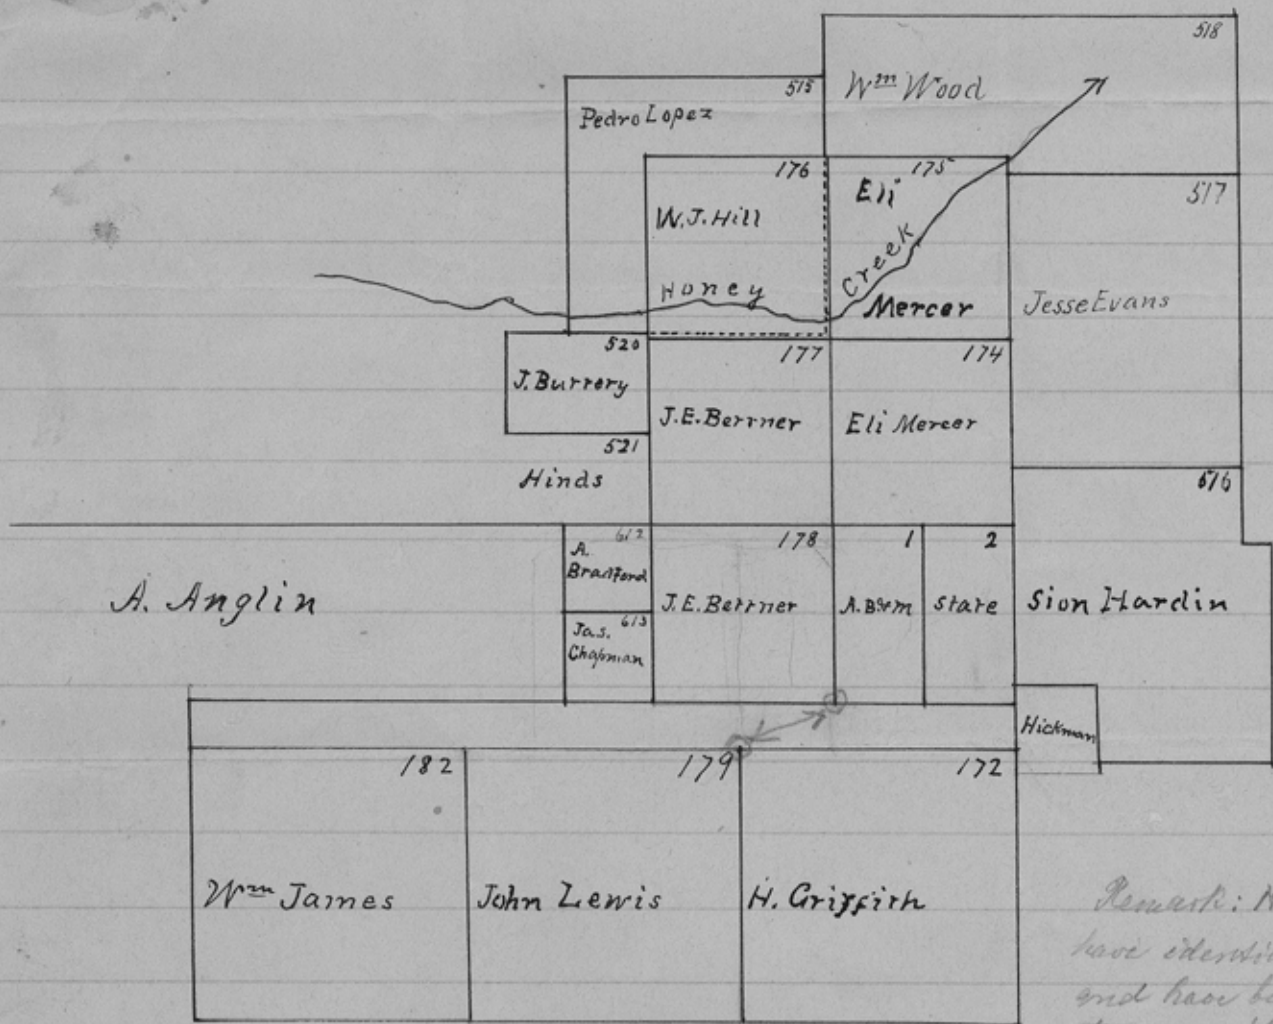 518
Wm Wood
515
Pedro Lopez
176
175
Eli
W.J. Hill
517
Honey
Creek
Mercer
Jesse Evans
520
177
174
J. Burrery
J.E. Berrner
Eli Mercer
521
Hinds
516
612
178
1
2
A.
Bradford
A. Anglin
J.E. Berrner
State
Sion Hardin
613
Jas.
Chapman
Hickman
182
179
172
Wm James
John Lewis
H. Griffith
Remark:
have
and have